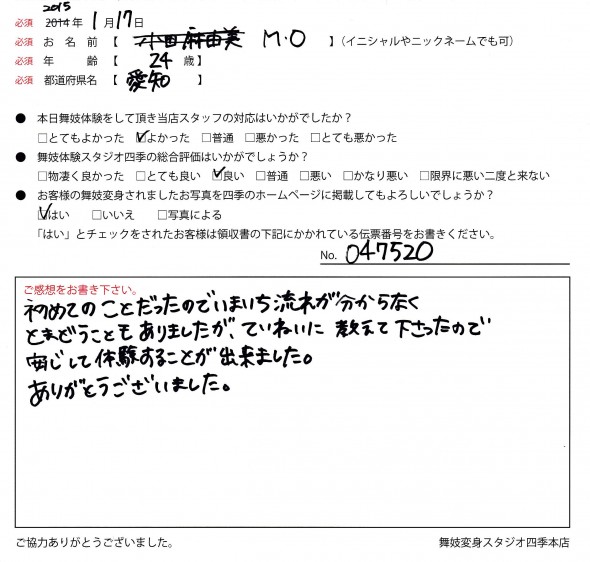 2015
必須 2014年 1月17日
必須 お名前【 M.O 】(イニシャルやニックネームでも可)
必須 年 齢【 24 歳】
必須 都道府県名【 愛知 】
● 本日舞妓体験をして頂き当店スタッフの対応はいかがでしたか？
□とてもよかった ☑よかった □普通 □悪かった □とても悪かった
● 舞妓体験スタジオ四季の総合評価はいかがでしょうか？
□物凄く良かった □とても良い ☑良い □普通 □悪い □かなり悪い □限界に悪い二度と来ない
● お客様の舞妓変身されましたお写真を四季のホームページに掲載してもよろしいでしょうか？
☑はい □いいえ □写真による
「はい」とチェックをされたお客様は領収書の下記にかかれている伝票番号をお書きください。
No. 047520
ご感想をお書き下さい。
初めてのことだったのでいまいち流れが分からなく
とまどうこともありましたが、ていねいに教えて下さったので
安心して体験することが出来ました。
ありがとうございました。
ご協力ありがとうございました。
舞妓変身スタジオ四季本店